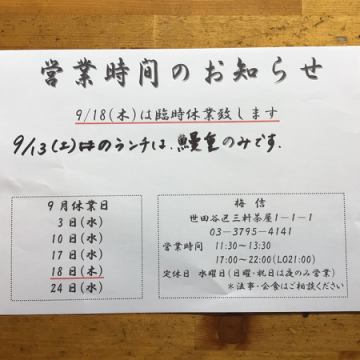 営業時間のお知らせ
9/18(木)は臨時休業致します
9/13(土)はのランチは、鰻重のみです.
9月休業日
3日(水)
10日(水)
17日(水)
18日(木)
24日(水)
梅信
世田谷区三軒茶屋1-1-1
03-3795-4141
営業時間 11:30~13:30
17:00~22:00(LO21:00)
定休日 水曜日(日曜・祝日は夜のみ営業)
*法事・会食はご相談ください